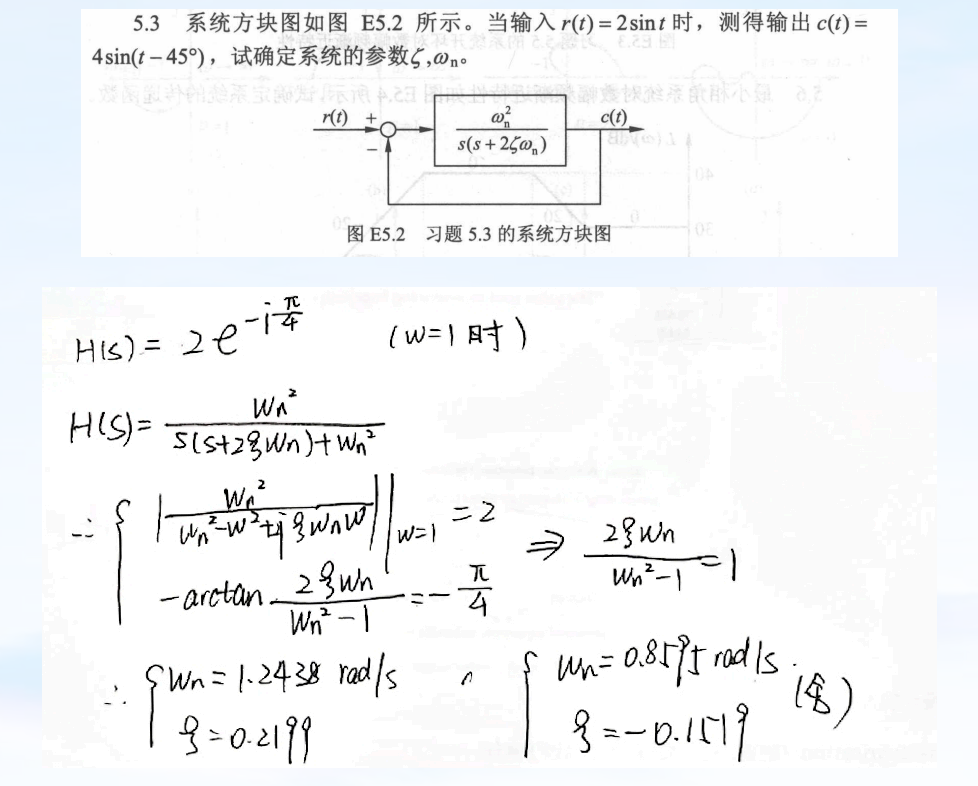 5.3 系统方块图如图 E5.2 所示。当输入 r(t) = 2sin t 时，测得输出 c(t) =
4sin(t – 45°)，试确定系统的参数ζ,ωn。
r(t) + ωn² / s(s + 2ζωn) c(t)
−
图 E5.2 习题 5.3 的系统方块图
H(s) = 2e^(-iπ/4) (w=1时)
H(s) = Wn² / S(S+2ξWn)+Wn²
∴ { |Wn² / Wn²-W²+j ξWnW| |w=1 = 2 ⇒ 2ξWn / Wn²-1 = 1
-arctan 2ξWn / Wn²-1 = -π/4
∴ { Wn = 1.2438 rad/s { Wn = 0.8595 rad/s (舍)
ξ = 0.2199 ξ = -0.1519